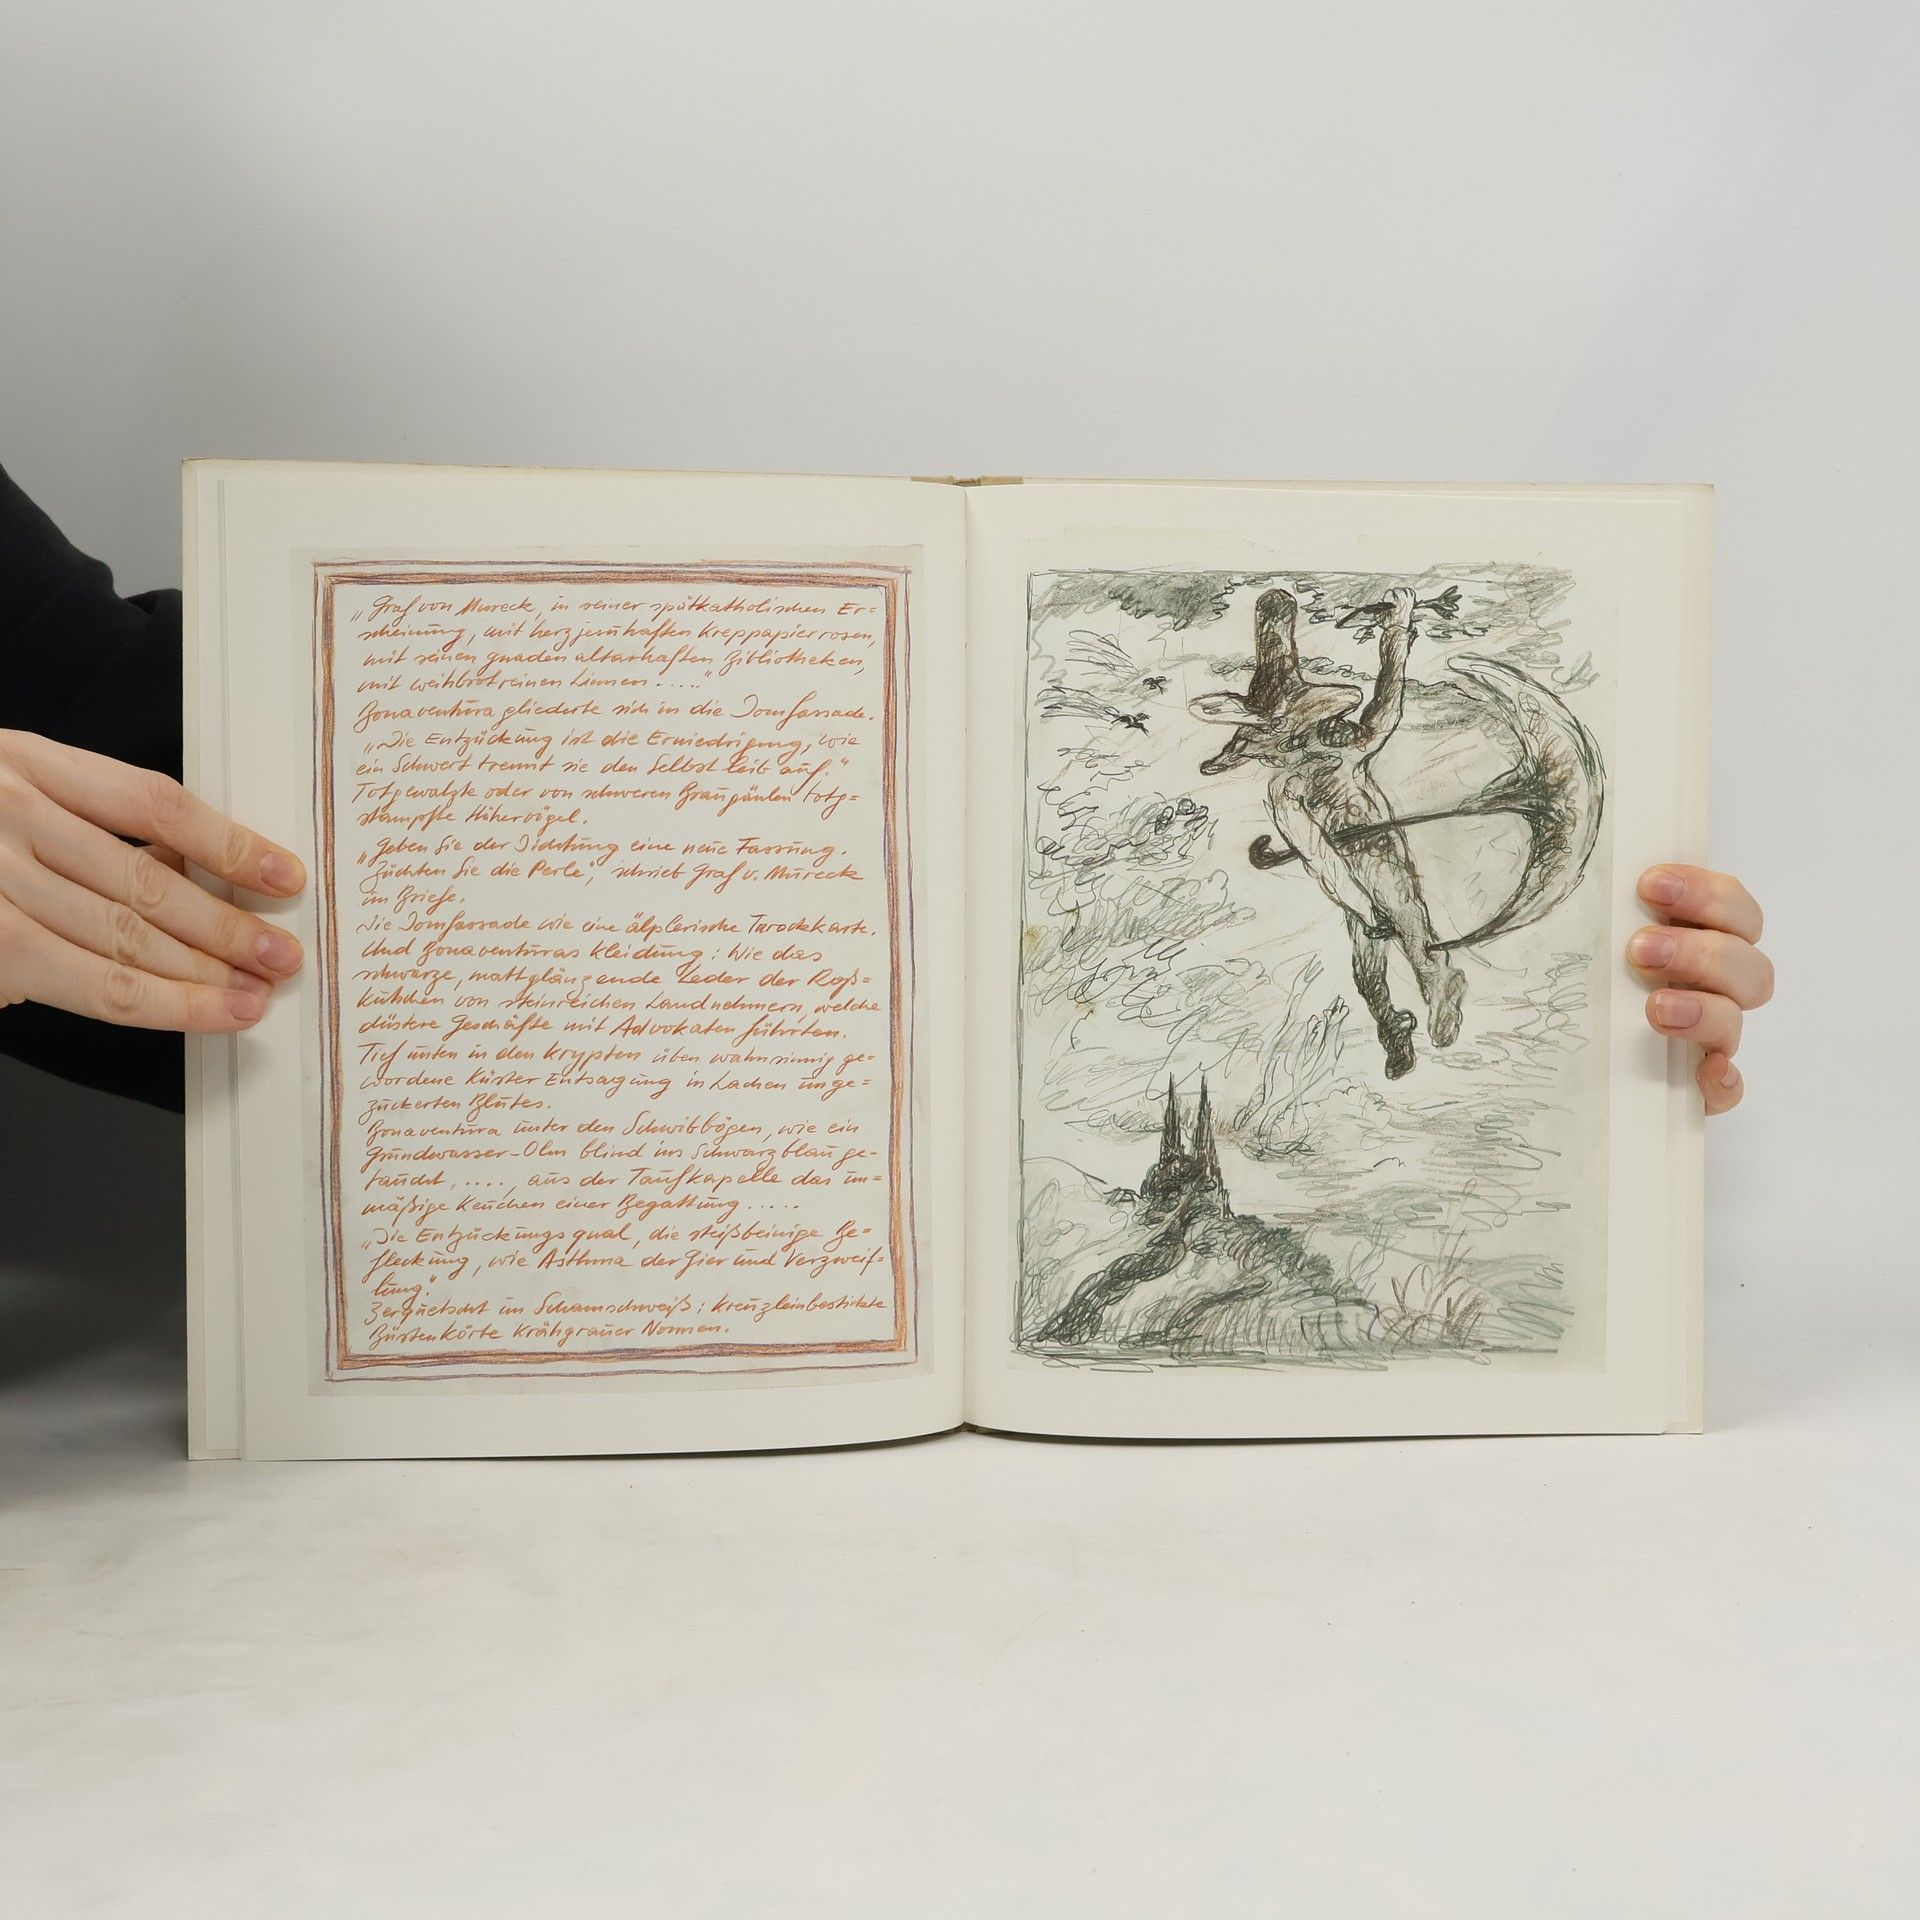 „Graf von Mureck, in seiner spätkatholischen Er=
scheinung, mit herzjesuhaften Kreppapierrosen,
mit seinen gnadenaltarhaften Bibliotheken,
mit weihbrotreinen Linnen ....."
Bonaventura gliederte sich in die Domfassade.
„Die Entzückung ist die Erniedrigung, wie
ein Schwert trennt sie den Selbstleib auf."
Totgewalzte oder von schweren Graugäulen totge=
stampfte Hähervögel.
„Geben Sie der Dichtung eine neue Fassung.
Züchten Sie die Perle", schrieb Graf v. Mureck
im Briefe.
Die Domfassade wie eine älplerische Tarockkarte.
Und Bonaventuras Kleidung: Wie das
schwarze, mattglänzende Leder der Roß=
kutschen von steinreichen Landnehmern, welche
düstere Geschäfte mit Advokaten führten.
Tief unten in den Krypten üben wahnsinnig ge=
wordene Küster Entsagung in Lachen unge=
zuckerten Blutes.
Bonaventura unter den Schwibbögen, wie ein
Grundwasser-Olm blind ins Schwarzblau ge-
taucht ....., aus der Taufkapelle das un=
mäßige Keuchen einer Begattung .....
„Die Entzückungsqual, die steißbeinige Be=
fleckung, wie Asthma der Gier und Verzweif=
lung."
Zerquetscht im Schamschweiß: kreuzleinbestickte
Bürstenkörbe krähgrauer Nonnen.